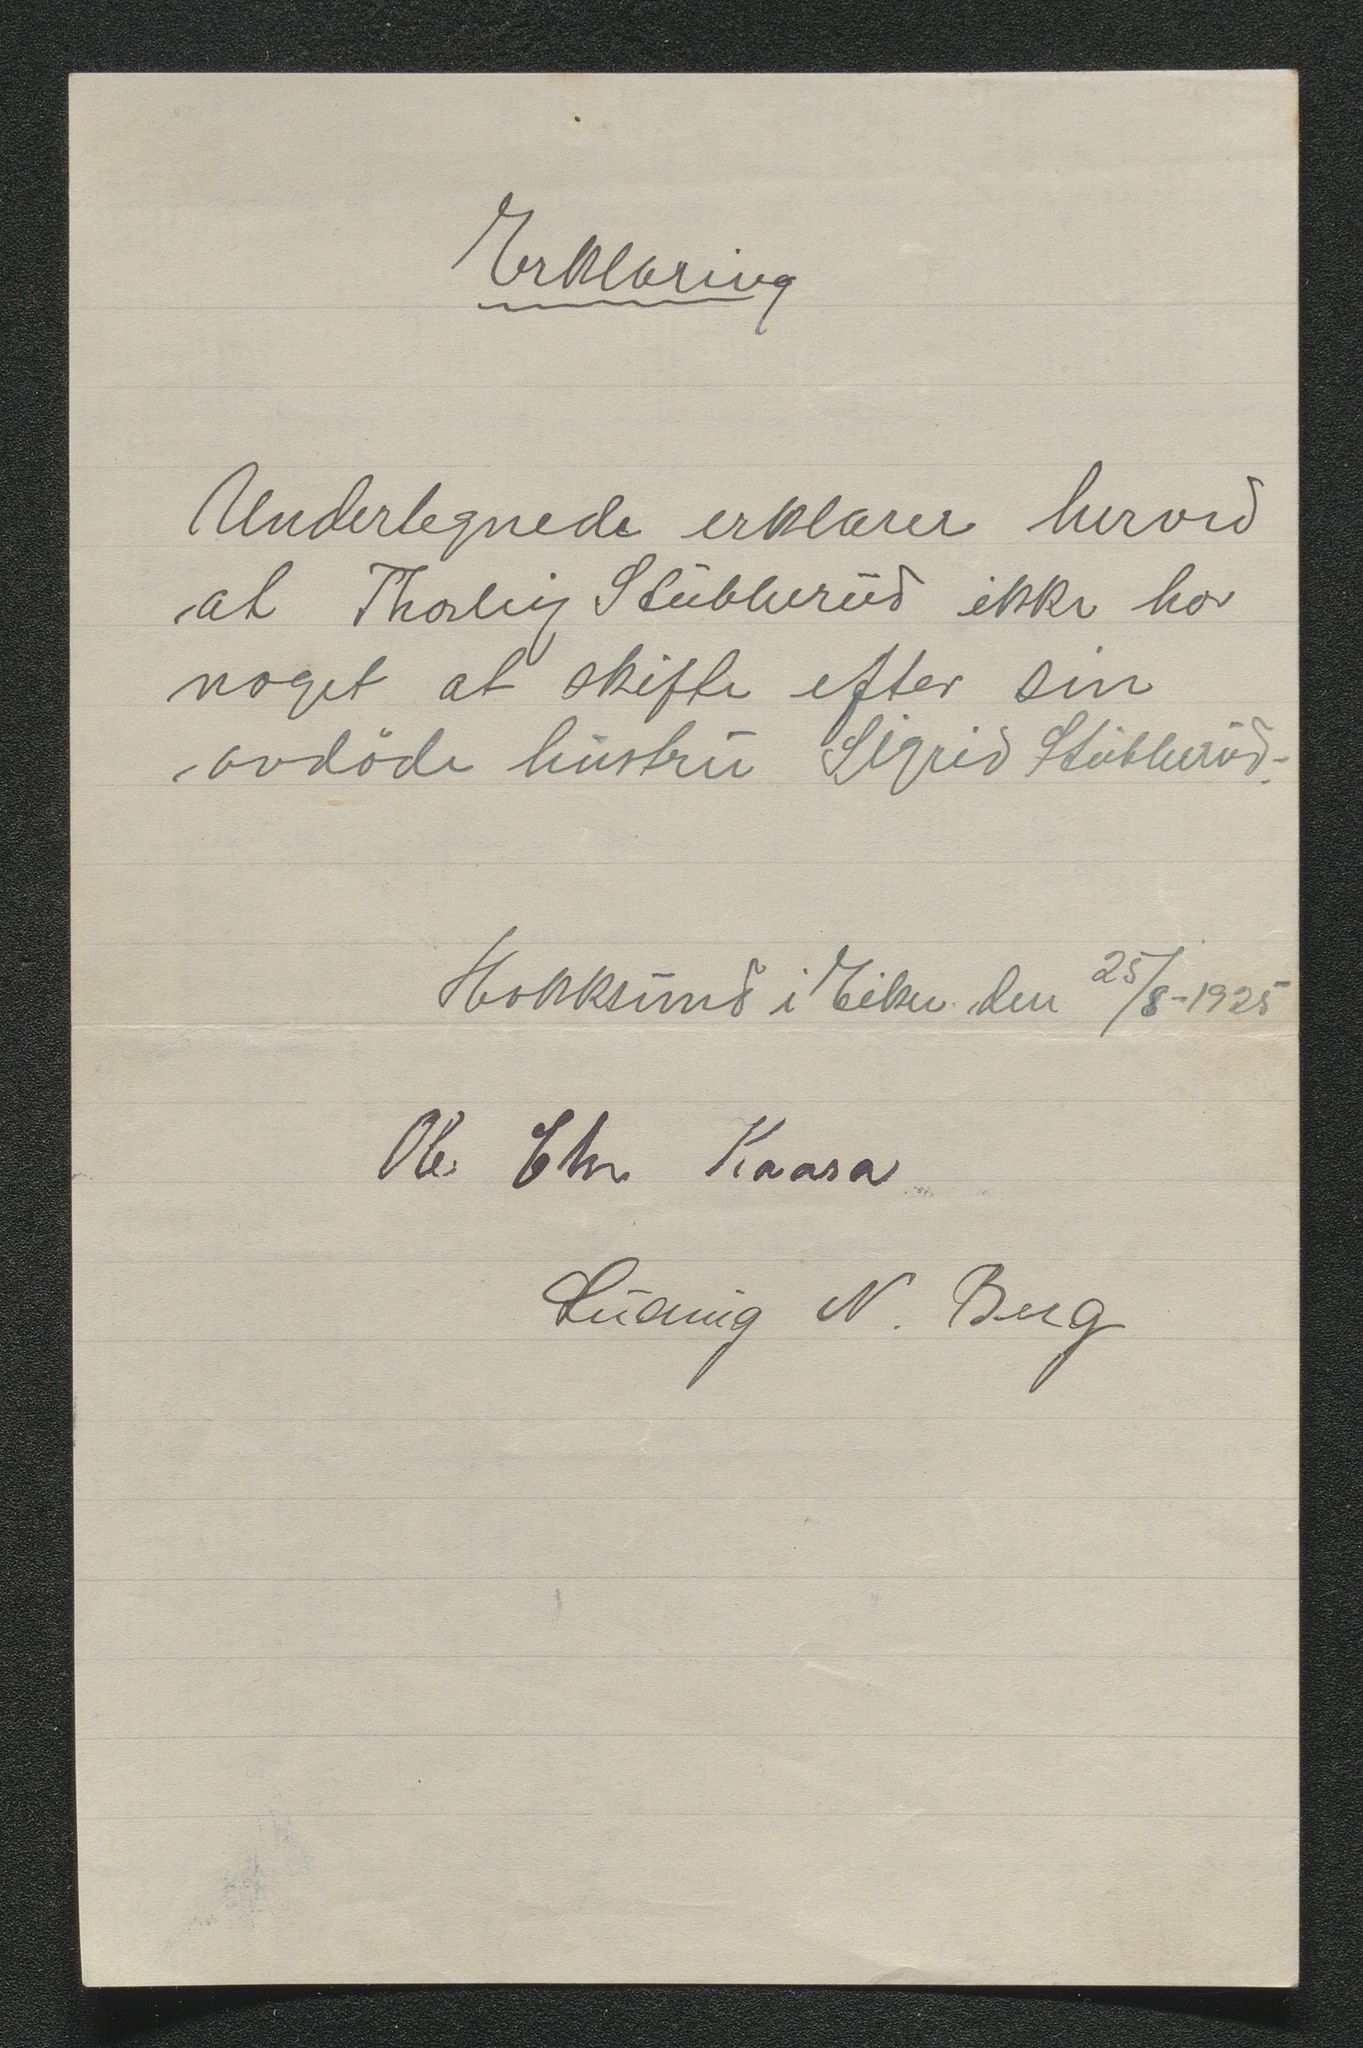 Erklæring
Undertegnede erklærer herved
at Thorleiv Stubberud ikke har
noget at skifte efter sin
avdöde hustru Sigrid Stubberud.-
Hokksund i Eiker den 25/8-1925
Ole Chr. Kaasa
Ludvig N. Berg